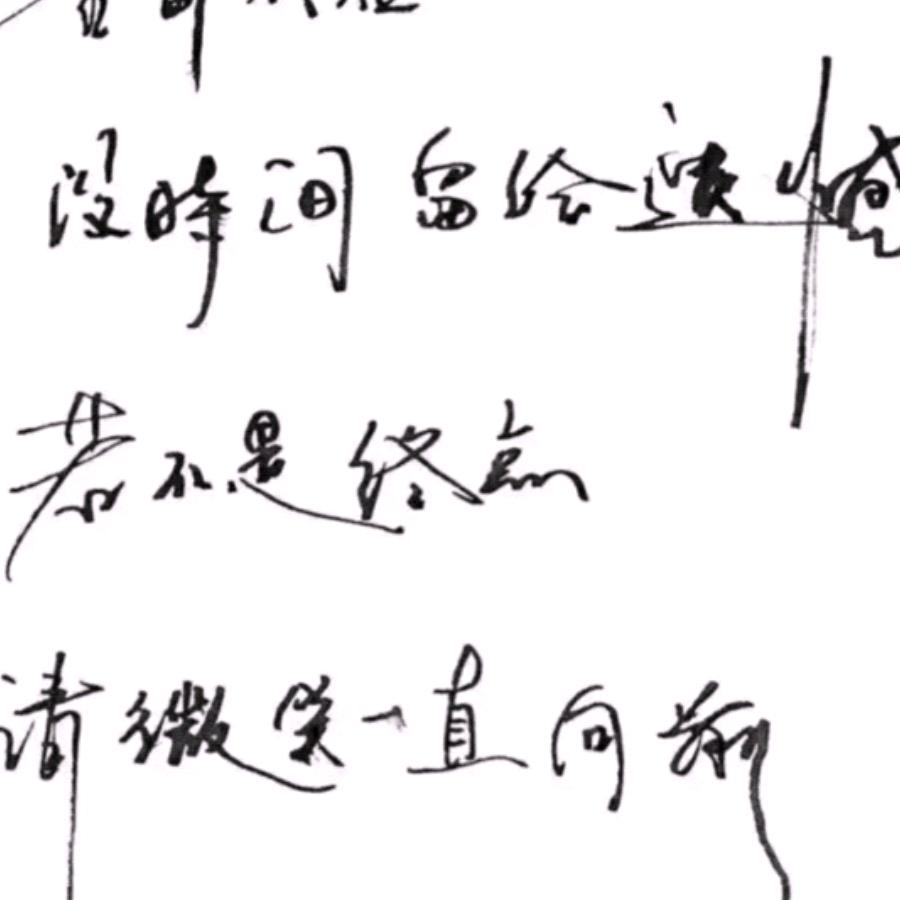 没时间留给遗憾
若不是终点
请微笑一直向前